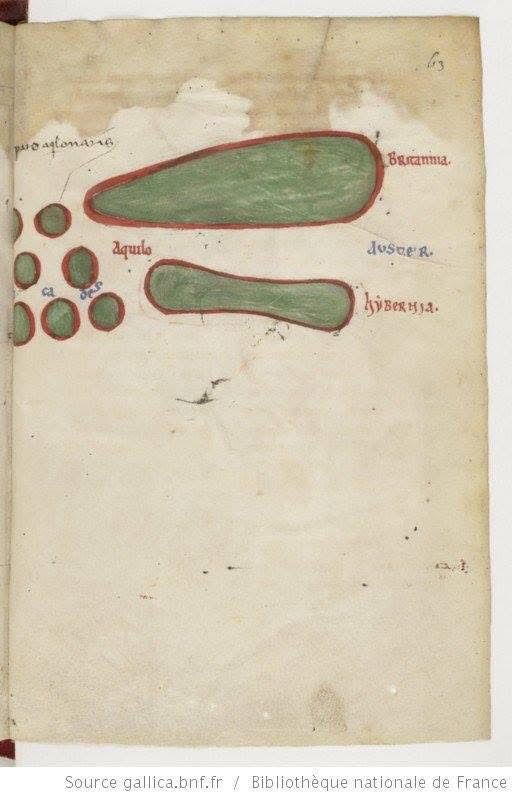 63
Britannia.
Aquilo
AUSTER.
ca des
hyberNIA.
Source gallica.bnf.fr / Bibliothèque nationale de France